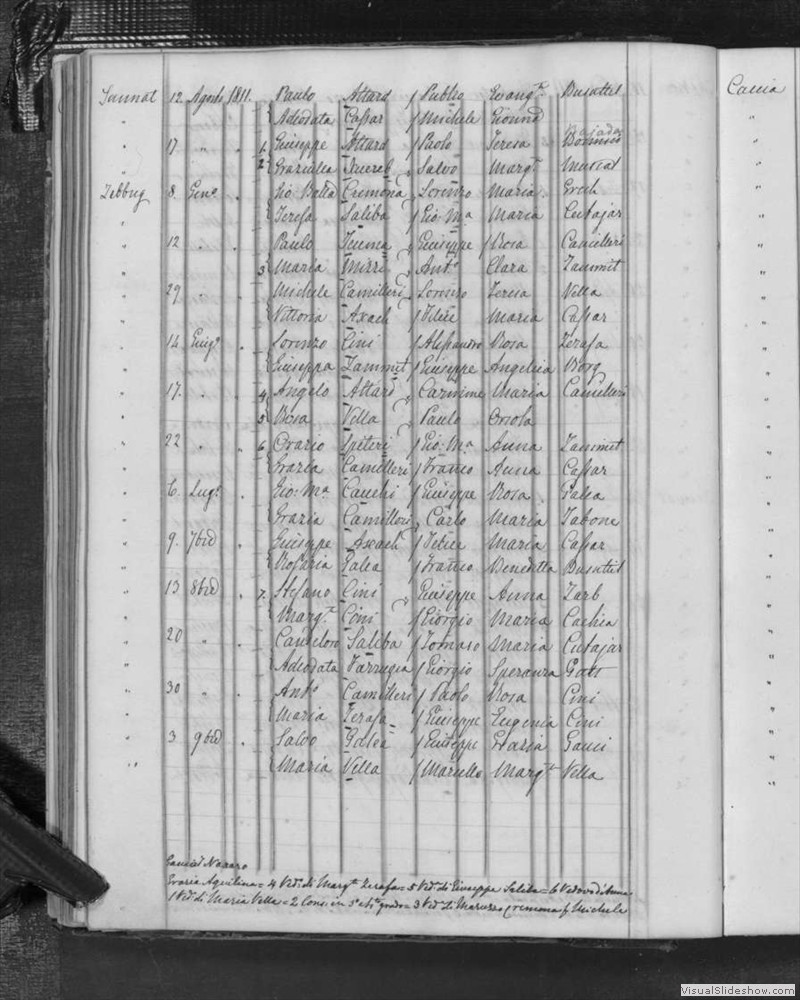 Sannat 12 Agosto 1811. Paulo Attard / Publio Evang.ta Busuttil
" Adeodata Caſsar / Michele
" 17 " " 1 Giuseppe Attard / Paolo Teresa
" 2 Graziulla Xuereb, Salvo Marg.ta Muscat
Zebbug 8 Gen.o " Gio: Batta Cremona, Lorenzo Maria Grech
" Teresa Saliba / Gio: M.a Maria Cutajar
" 12 " " Paulo Teuma, Giuseppe / Rosa Camilleri
" 3 Maria Mizzi, Ant.o Clara Zammit
" 29 " " Michele Camilleri, Lorenzo Teresa Vella
" Vittoria Axach / Felice Maria Caſsar
" 14 Giug.o " Lorenzo Cini / Aleſsandro Rosa Zerafa
" Giuseppa Zammit / Giuseppe Angelica Borg
" 17. " " 4 Angelo Attard, Carmine Maria Camilleri
" 5 Rosa Vella, Paulo Orsola
" 22 " " 6 Orazio Speteri / Gio: M.a Anna Zammit
" Grazia Camilleri / Franco Anna Caſsar
" 6. Lug.o " Gio: M.a Cauchi / Giuseppe Rosa Galea
" Grazia Camilleri, Carlo Maria Tabone
" 9. 7bre " Giuseppe Axach / Felice Maria Caſsar
" Rosaria Galea / Franco Benedetta Busuttil
" 13 8bre " 7. Stefano Cini, Giuseppe Anna Zarb
" Marg.ta Cini / Giorgio Maria Cachia
" 20 " " Candeloro Saliba / Tomaso Maria Cutajar
" Adeodata Farrugia / Giorgio Speranza
" 30 " " Ant.o Camilleri / Paolo Rosa Cini
" Maria Zerafa / Giuseppe Eugenia Cini
" 3 9bre " Salvo Galea / Giuseppe Grazia Gauci
" Maria Vella / Marcello Marg.ta Vella
Nazaro
Grazia Aquilina = 4 Ved.o di Marg.ta Zerafa = 5 Ved.a di Giuseppe Saliba = 6 Vedovo di Anna
1 Ved. di Maria Vella = 2 Cons: in 3.o e 4.o grado = 3 Ved. di Maruzzo Cremona f. Michele
Caccia
VisualSlideshow.com